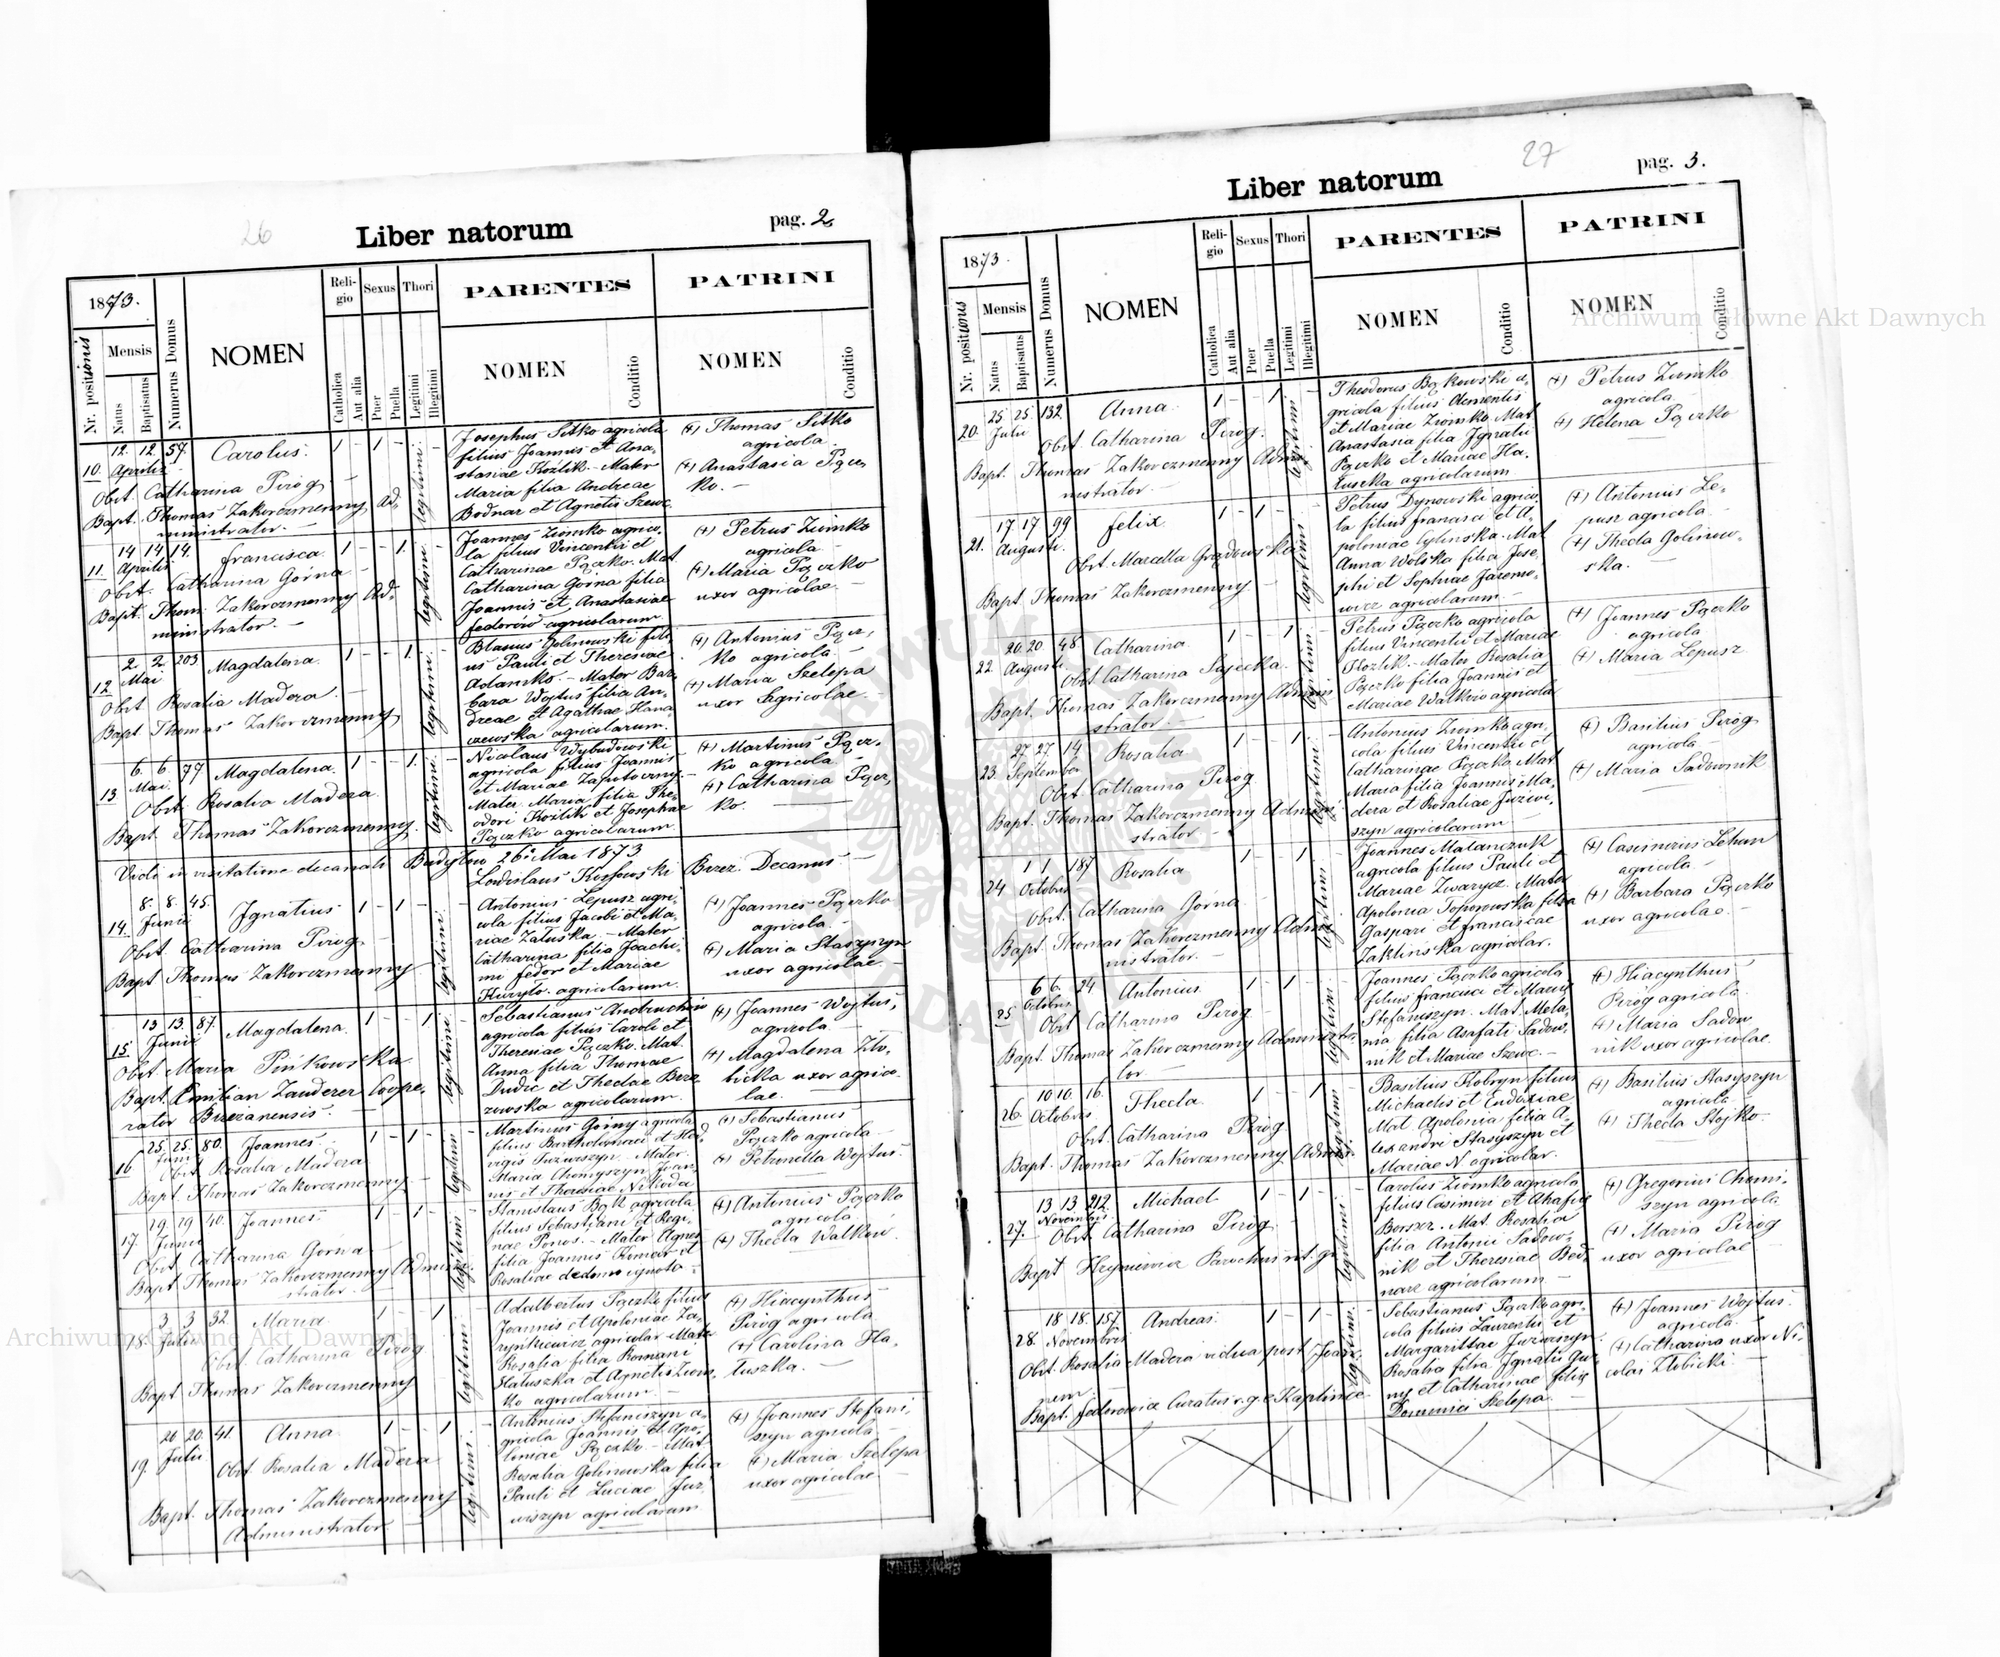 26
Liber natorum
pag. 2
1873.
Nr. positionis
Mensis
Natus
Baptisatus
Numerus Domus
NOMEN
Religio
Sexus
Thori
Catholica
Aut alia
Puer
Puella
Legitimi
Illegitimi
PARENTES
NOMEN
Conditio
PATRINI
NOMEN
Conditio
10.
12. 12. 57.
Aprilis
Carolus.
1 - 1 -
legitimi
Obst. Catharina Pirog
Bapt. Thomas Zakorczmenny Ad-
ministrator. -
Josephus Sitko agricola
filius Joannis et Ana-
stasiae Kozlik. - Mater
Maria filia Andreae
Bodnar et Agnetis Szewc.
(+) Thomas Sitko
agricola.
(+) Anastasia Pącz-
ko. -
11.
14 14 14.
Aprilis
Francisca
1 - - 1.
legitimi
Obst. Catharina Górna -
Bapt. Thom. Zakorczmenny Ad-
ministrator. -
Joannes Ziomko agrico-
la filius Vincentii et
Catharinae Pączko. Mat.
Catharina Górna filia
Joannis et Anastasiae
Fedorów agricolarum
(+) Petrus Ziomko
agricola -
(+) Maria Pączko
uxor agricolae -
12
2. 2. 203.
Mai
Magdalena.
1 - - 1.
legitimi
Obst. Rosalia Madera. -
Bapt. Thomas Zakorczmenny
Blasius Golinowski fili-
us Pauli et Theresiae
Adamko. - Mater Bar-
bara Wojtus filia An-
dreae et Agathae Hana-
czewska agricolarum.
(+) Antonius Pącz-
ko agricola -
(+) Maria Szelepa
uxor agricolae -
13
6. 6. 79
Mai
Magdalena.
1 - - 1.
legitimi
Obst. Rosalia Madera.
Bapt. Thomas Zakorczmenny.
Nicolaus Wybudowski
agricola filius Joannis
et Mariae Zapotoczny -
Mater Maria filia The-
odori Kozlik et Josephae
Pączko agricolarum
(+) Martinus Pącz-
ko agricola -
(+) Catharina Pącz-
ko. -
Vidi in visitatione decanali Budyłow 26. Mai 1873
Ladislaus Kossowski Brzez. Decanus -
14.
8. 8. 45.
Junii
Ignatius
1 - 1 -
legitimi
Obst. Catharina Pirog. -
Bapt. Thomas Zakorczmenny
Antonius Lepusz agri-
cola filius Jacobi et Ma-
riae Załuska. - Mater
Catharina filia Joachi-
mi Fedor et Mariae
Kuryło. agricolarum.
(+) Joannes Pączko
agricola -
(+) Maria Staszyszyn
uxor agricolae. -
15
13 13. 87.
Junii
Magdalena
1 - - 1 -
legitimi
Obst. Maria Pinkowska
Bapt. Emilian Zauderer Coope-
rator Brzezanensis. -
Sebastianus Andruchów
agricola filius Caroli et
Theresiae Pączko. Mat.
Anna filia Thomae
Dudic et Theclae Bere-
zowska agricolarum.
(+) Joannes Wojtus,
agricola -
(+) Magdalena Zło-
bicka uxor agrico-
lae. -
16
25. 25. 80.
Junii
Joannes.
1 - 1 -
legitimi
Obst. Rosalia Madera
Bapt. Thomas Zakorczmenny. -
Martinus Górny agricola
filius Bartholomaei et Hed-
vigis Juzwiszyn. Mater.
Maria Chomyszyn Joan-
nis et Theresiae Nikoda
(+) Sebastianus
Pączko agricola -
(+) Petronella Wojtus.
17.
29 29 40.
Junii
Joannes.
1 - 1 -
legitimi
Obst. Catharina Górna -
Bapt. Thomas Zakorczmenny Admini-
strator. -
Stanislaus Bąk agricola
filius Sebastiani et Regi-
nae Ponos. - Mater Agnes
filia Joannis Rimar et
Rosaliae de domo ignota.
(+) Antonius Pączko
agricola.
(+) Thecla Walków.
18.
3 3 32.
Julii
Maria
1 - - 1 -
legitimi
Obst. Catharina Pirog
Bapt. Thomas Zakorczmenny
Adalbertus Pączko filius
Joannis et Apoloniae Za-
rynkiewicz agricolar. Mater
Rosalia filia Romani
Hałuszka et Agnetis Ziom-
ko agricolarum -
(+) Hiacynthus
Pirog agricola
(+) Carolina Ha-
łuszka. -
19.
20 20. 41.
Julii
Anna.
1 - - 1 -
legitimi
Obst. Rosalia Madera
Bapt. Thomas Zakorczmenny
Administrator. -
Antonius Stefaniszyn a-
gricola Joannis et Apo-
loniae Pączko. - Mat.
Rosalia Golinowska filia
Pauli et Luciae Juz-
wiszyn agricolarum
(+) Joannes Stefani-
szyn agricola -
(+) Maria Szelepa
uxor agricolae. -
27
Liber natorum
pag. 3.
1873.
Nr. positionis
Mensis
Natus
Baptisatus
Numerus Domus
NOMEN
Religio
Sexus
Thori
Catholica
Aut alia
Puer
Puella
Legitimi
Illegitimi
PARENTES
NOMEN
Conditio
PATRINI
NOMEN
Conditio
20.
25. 25. 132.
Julii
Anna.
1 - - 1 -
legitimi
Obst. Catharina Pirog.
Bapt. Thomas Zakorczmenny Admi-
nistrator. -
Theodorus Bąkowski a-
gricola filius Clementis
et Mariae Ziomko. Mat.
Anastasia filia Ignatii
Pączko et Mariae Ha-
łuszka agricolarum
(+) Petrus Ziomko
agricola -
(+) Helena Pączko
21.
17 17 99
Augusti.
Felix.
1 - 1 -
legitimi
Obst. Marcella Grądowska
Bapt. Thomas Zakorczmenny -
Petrus Dynowski agrico-
la filius Francisci et A-
poloniae Cylinska. Mat.
Anna Wolska filia Jose-
phi et Sophiae Jaremo-
wicz agricolarum -
(+) Antonius Le-
pusz agricola -
(+) Thecla Golinow-
ska. -
22.
20. 20. 48.
Augusti.
Catharina.
1 - - 1 -
legitimi
Obst. Catharina Sajecka.
Bapt. Thomas Zakorczmenny Admini-
strator. -
Petrus Pączko agricola
filius Vincentii et Mariae
Kozlik. - Mater Rosalia
Pączko filia Joannis et
Mariae Walków agricola
(+) Joannes Pączko
agricola
(+) Maria Lepusz
23.
27. 27 14
Septembr.
Rosalia
1 - - 1 -
legitimi
Obst. Catharina Pirog
Bapt. Thomas Zakorczmenny Admini-
strator -
Antonius Ziomko agri-
cola filius Vincentii et
Catharinae Pączko Mat.
Maria filia Joannis Ma-
dera et Rosaliae Juzwi-
szyn agricolarum -
(+) Basilius Pirog
agricola
(+) Maria Sadownik
24
1 1. 187
Octobris
Rosalia
1 - - 1 -
legitimi
Obst. Catharina Górna
Bapt. Thomas Zakorczmenny Admi-
nistrator. -
Joannes Matanczuk
agricola filius Pauli et
Mariae Zwarycz. Mater
Apolonia Toporowska filia
Gaspari et Franciscae
Zaklinska agricolar.
(+) Casimirius Lehun
agricola -
(+) Barbara Pączko
uxor agricolae. -
25.
6 6. 24
Octobris
Antonius.
1 - 1 -
legitimi
Obst. Catharina Pirog.
Bapt. Thomas Zakorczmenny Administra-
tor. -
Joannes Pączko agricola
filius Francisci et Mariae
Stefaniszyn. Mat. Mela-
nia filia Asafati Sadow-
nik et Mariae Szewc. -
(+) Hiacynthus
Pirog agricola.
(+) Maria Sadow-
nik uxor agricolae.
26.
10 10. 16.
Octobris
Thecla.
1 - - 1 -
legitimi
Obst. Catharina Pirog.
Bapt. Thomas Zakorczmenny Admin.
Basilius Kobryn filius
Michaelis et Eudoxiae
Mat. Apolonia filia A-
lexandri Stasyszyn et
Mariae N agricolar.
(+) Basilius Stasyszyn
agricola
(+) Thecla Stojko -
27.
13 13. 212.
Novembris
Michael
1 - 1 -
legitimi
Obst. Catharina Pirog
Bapt. Hryniewicz Parochus rit. gr.
Carolus Ziomko agricola
filius Casimiri et Ahafiae
Borszcz. Mat. Rosalia
filia Antonii Sadow-
nik et Theresiae Bed-
narz agricolarum -
(+) Gregorius Chomi-
szyn agricola
(+) Maria Pirog
uxor agricolae
28.
18 18. 157.
Novembris
Andreas.
1 - 1 -
legitimi
Obst. Rosalia Madera vidua post Joan-
nem.
Bapt. Fedorowicz Curatus r. g. e Kaplince
Sebastianus Pączko agri-
cola filius Laurentii et
Margarittae Juzwiszyn.
Rosalia filia Ignatii Gur-
ny et Catharinae filiae
Domenici Szelepa. -
(+) Joannes Wojtus.
agricola.
(+) Catharina uxor Ni-
colai Złobicki. -
Archiwum Główne Akt Dawnych
Archiwum Główne Akt Dawnych